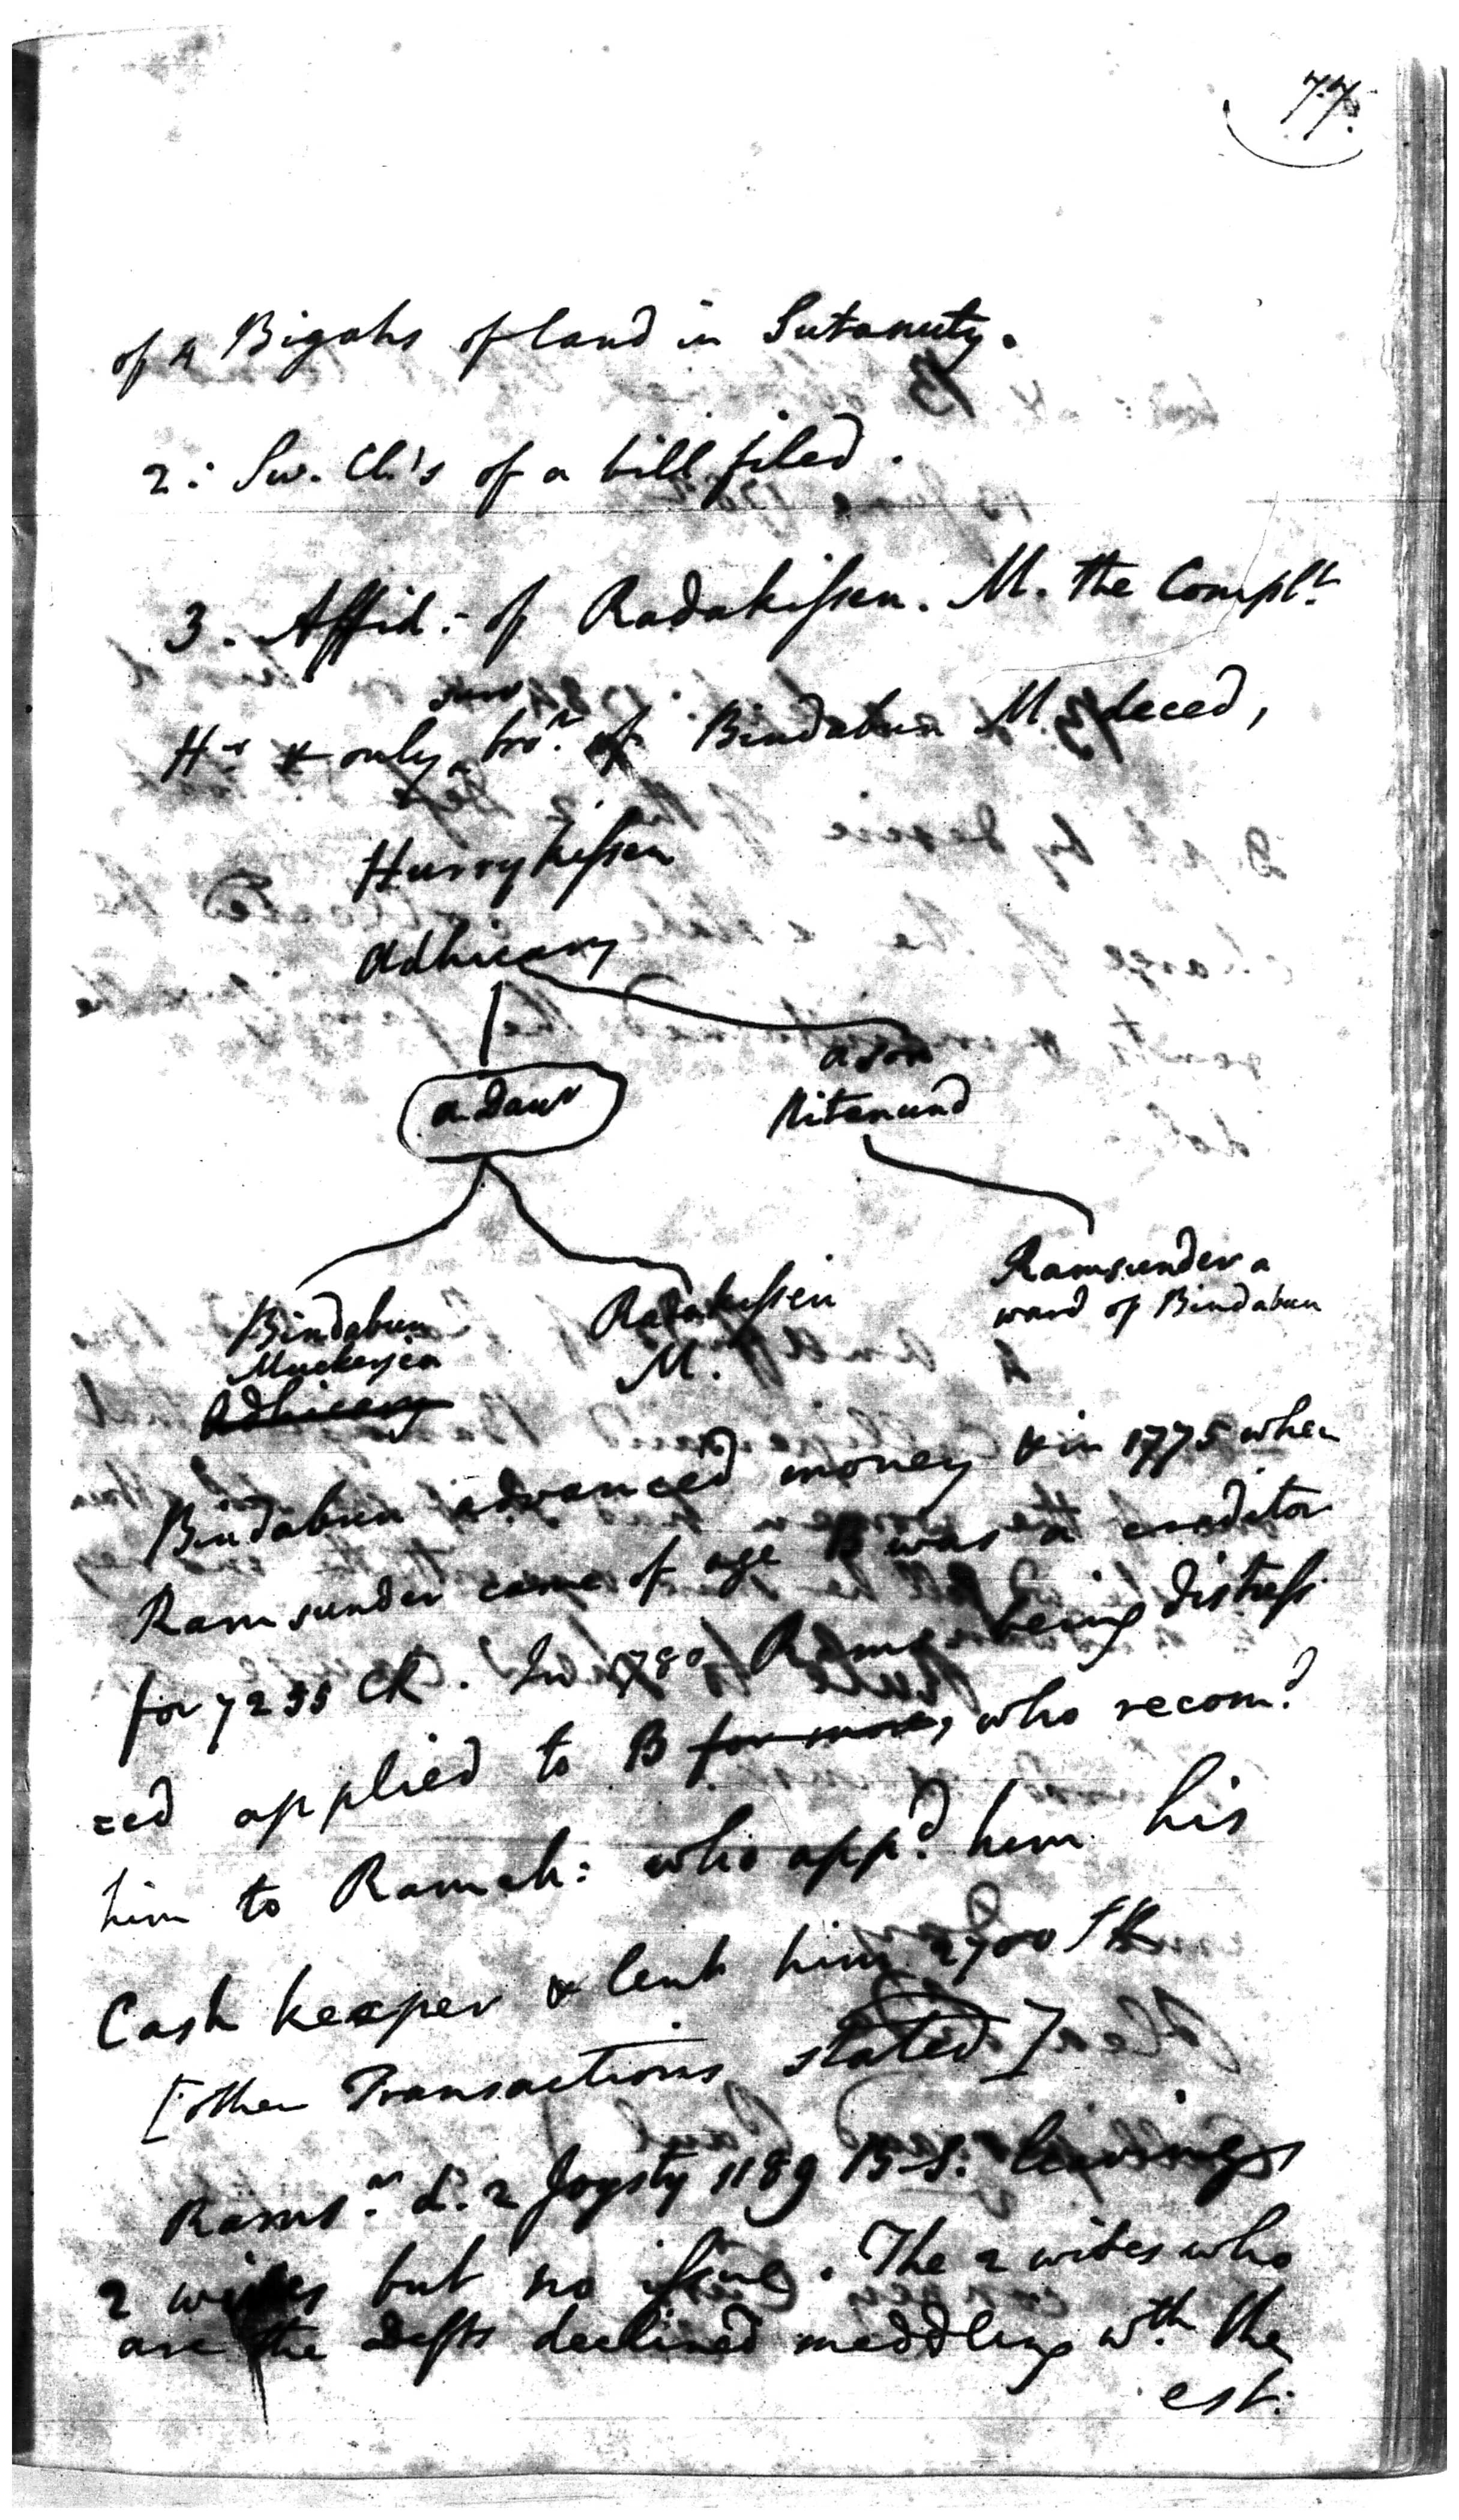 77.
of a Bigahs of land in Sutanuty.
2: Sw. Cl.'s of a bill filed.
3. Affid: of Radakissen. M. the Complt.
surv
Hr & only bror. of Bindabun M. deced,
Hurrykissen
Adhicary
a son
a daur
Nitenund
Ramsunder a
ward of Bindabun
Bindabun
Muckerjea
Adhicary
Radakissen
M.
Bindabun advanced money & in 1775 when
Ramsunder came of age B was a creditor
for 7235 CR. In 1780 Rams being distress
=ed applied to B for more, who recomd.
him to Ramck: who appd. him his
Cash keeper & lent him 2700 SR
[other Transactions stated]
Ramsr. d. 2 Joysty 1189 B.S. leaving
2 wives but no issue. The 2 wives who
are the Defts declined meddling wth the
est: